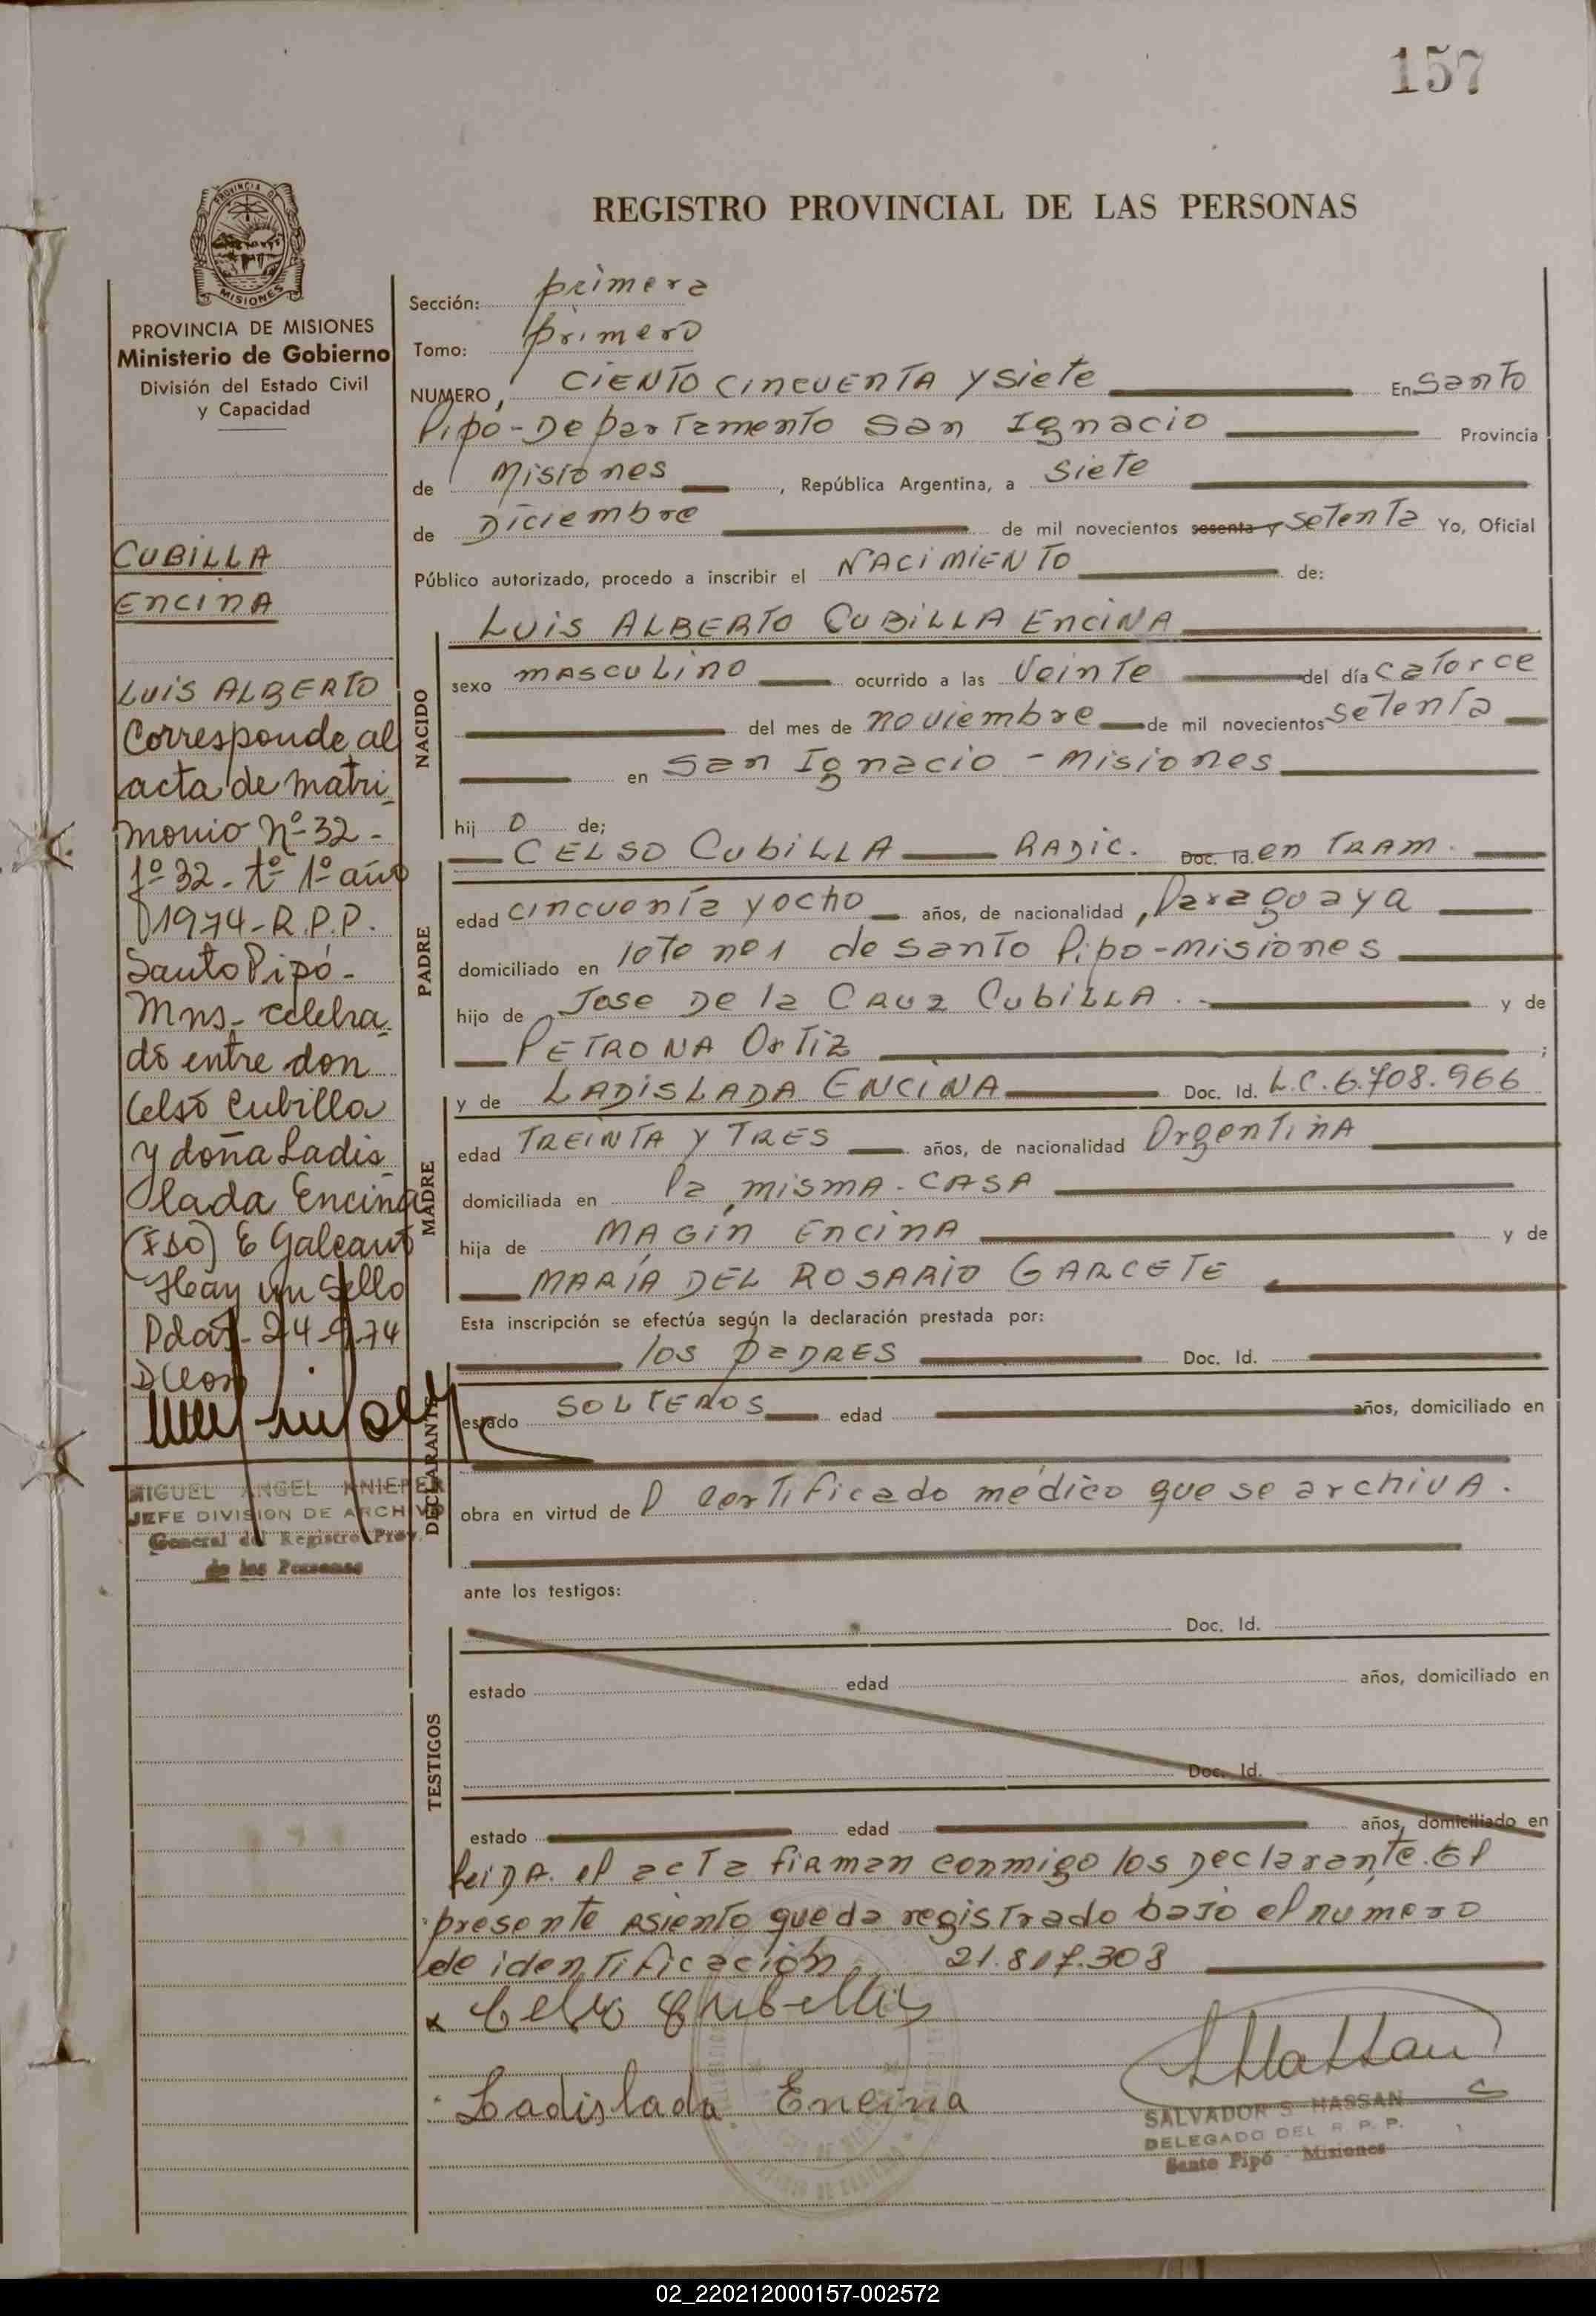 157
PROVINCIA DE
MISIONES
REGISTRO PROVINCIAL DE LAS PERSONAS
PROVINCIA DE MISIONES
Ministerio de Gobierno
División del Estado Civil
y Capacidad
CUBILLA
ENCINA
LUIS ALBERTO
Corresponde al
acta de matri_
monio Nº 32 -
fº 32 - tº 1º año
1974 - R.P.P.
Santo Pipó -
Mns - celebra_
do entre don
Celso Cubilla
y doña Ladis_
lada Encina
(FDO) E Galeano
Hay un sello
Pdas - 24-9-74
MIGUEL ANGEL KNIEPER
JEFE DIVISION DE ARCHIVO
General del Registro Prov.
de las Personas
Sección: primera
Tomo: primero
NUMERO, CIENTO CINCUENTA Y SIETE En Santo
Pipó - Departamento San Ignacio Provincia
de Misiones, República Argentina, a Siete
de Diciembre de mil novecientos sesenta y Setenta Yo, Oficial
Público autorizado, procedo a inscribir el NACIMIENTO de:
LUIS ALBERTO CUBILLA ENCINA
NACIDO
sexo masculino ocurrido a las Veinte del día catorce
del mes de noviembre de mil novecientos setenta
en San Ignacio - Misiones
hij o de;
PADRE
CELSO CUBILLA RADIC. Doc. Id. en TRAM.
edad cincuenta y ocho años, de nacionalidad Paraguaya
domiciliado en lote nº 1 de Santo Pipo - Misiones
hijo de Jose De la CRUZ CUBILLA . - y de
PETRONA ORTIZ ;
MADRE
y de LADISLADA ENCINA Doc. Id. L.C. 6.708.966
edad TREINTA Y TRES años, de nacionalidad Argentina
domiciliada en la misma - CASA
hija de MAGIN ENCINA y de
MARÍA DEL ROSARIO GARCETE
Esta inscripción se efectúa según la declaración prestada por:
DECLARANTE
los PADRES Doc. Id.
estado SOLTEROS edad años, domiciliado en
obra en virtud de l certificado médico que se archiva.
ante los testigos:
TESTIGOS
Doc. Id.
estado edad años, domiciliado en
Doc. Id.
estado edad años, domiciliado en
Leida el acta firman conmigo los Declarante. El
presente asiento queda registrado bajo el numero
de identificación 21.817.308
x Celso Cubilla
Ladislada Encina
SALVADOR S HASSAN
DELEGADO DEL R. P. P.
Santo Pipó - Misiones
02_220212000157-002572